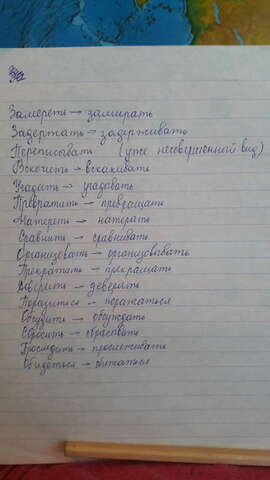 Замереть → замирать
Задержать → задерживать
Переписывать (уже несовершенный вид)
Вскочить → вскакивать
Угадать → угадовать
Превратить → превращать
Натереть → натерать
Сравнить → сравнивать
Организовать → организовывать
Прекратить → прекращать
Доверить → доверять
Поразиться → поражаться
Обсудить → обсуждать
Сбросить → сбрасывать
Проследить → прослеживать
Обидеться → обижаться